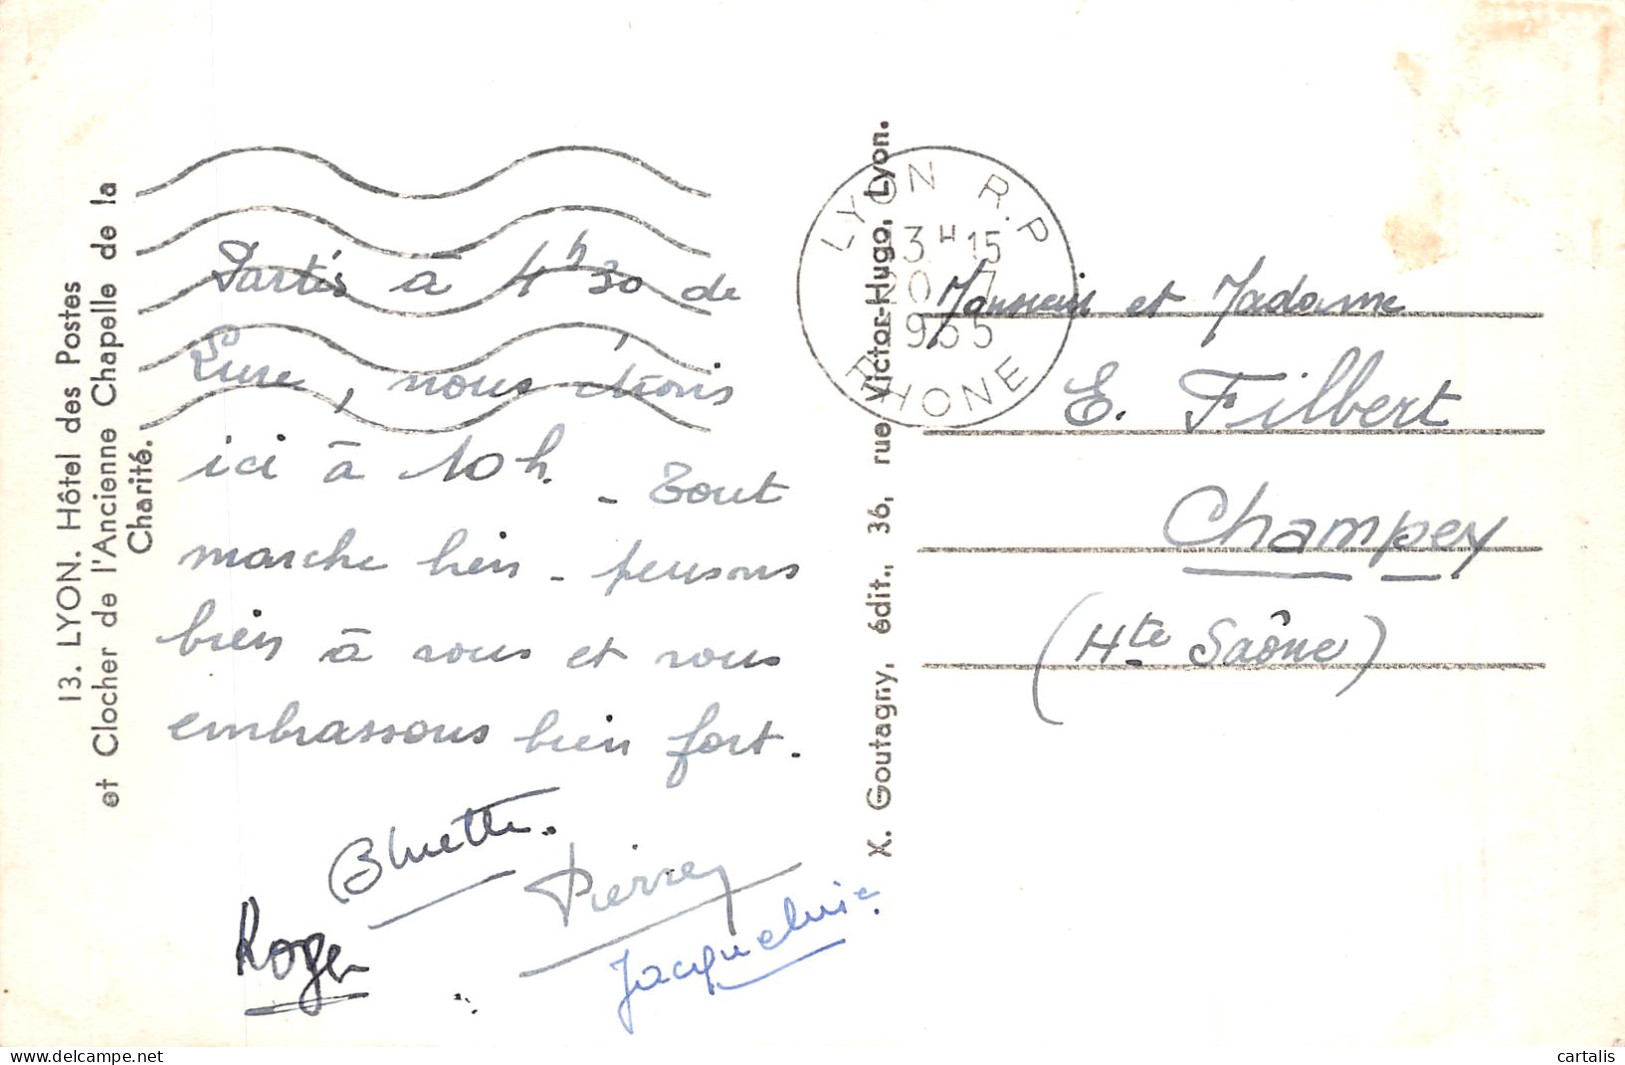 13. LYON. Hôtel des Postes
et Clocher de l'Ancienne Chapelle de la
Charité.
Partis à 4h30 de
Lure, nous étions
ici à 10h. - Tout
marche bien - pensons
bien à vous et vous
embrassons bien fort.
Bluette.
Pierre
Roger
Jacqueline.
X. Goutagny, édit., 36, rue Victor-Hugo, Lyon.
LYON R.P
13H15
20-7
1955
RHONE
Monsieur et Madame
E. Filbert
Champey
(Hte Saône)
delcampe.net
cartalis